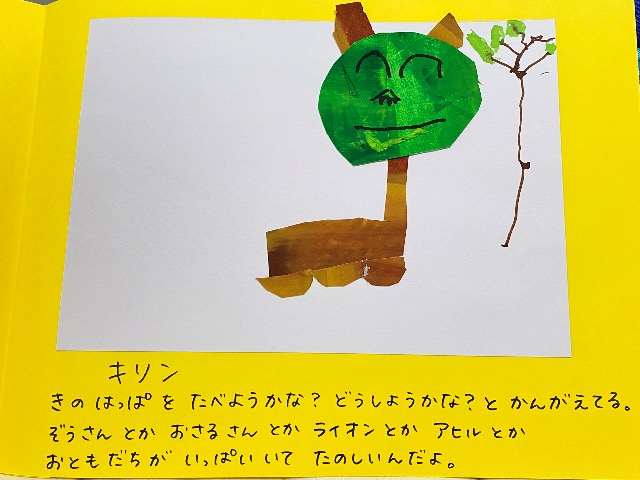 キリン
きの はっぱ を たべようかな? どうしようかな? と かんがえてる。
ぞうさん とか おさる さん とか ライオン とか アヒル とか
おともだちが いっぱい いて たのしいんだよ。